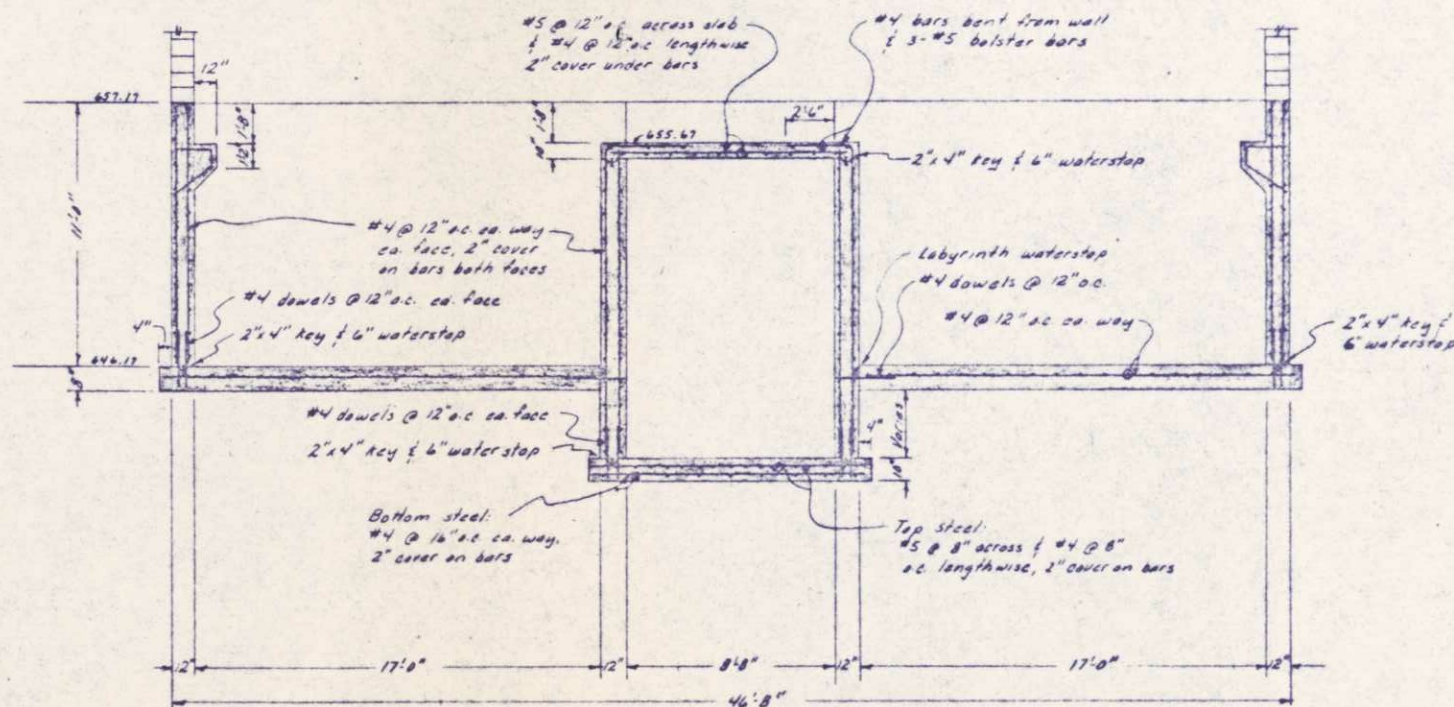 #5 @ 12" o.c. across slab
& #4 @ 12" o.c. lengthwise
2" cover under bars
#4 bars bent from wall
& 3-#5 bolster bars
12"
657.17
1'-8"
1'-8"
2'-6"
655.67
10"
2"x4" key & 6" waterstop
11'-0"
#4 @ 12" o.c. ea. way
ea. face, 2" cover
on bars both faces
Labyrinth waterstop
#4 dowels @ 12" o.c.
#4 dowels @ 12" o.c. ea. face
#4 @ 12" o.c. ea. way
4"
2"x4" key & 6" waterstop
2"x4" key &
6" waterstop
646.17
8"
#4 dowels @ 12" o.c. ea. face
4"
Varies
2"x4" key & 6" waterstop
10"
Bottom steel:
#4 @ 16" o.c. ea. way,
2" cover on bars
Top steel:
#5 @ 8" across & #4 @ 8"
o.c. lengthwise, 2" cover on bars
12"
17'-0"
12"
8'-8"
12"
17'-0"
12"
46'-8"